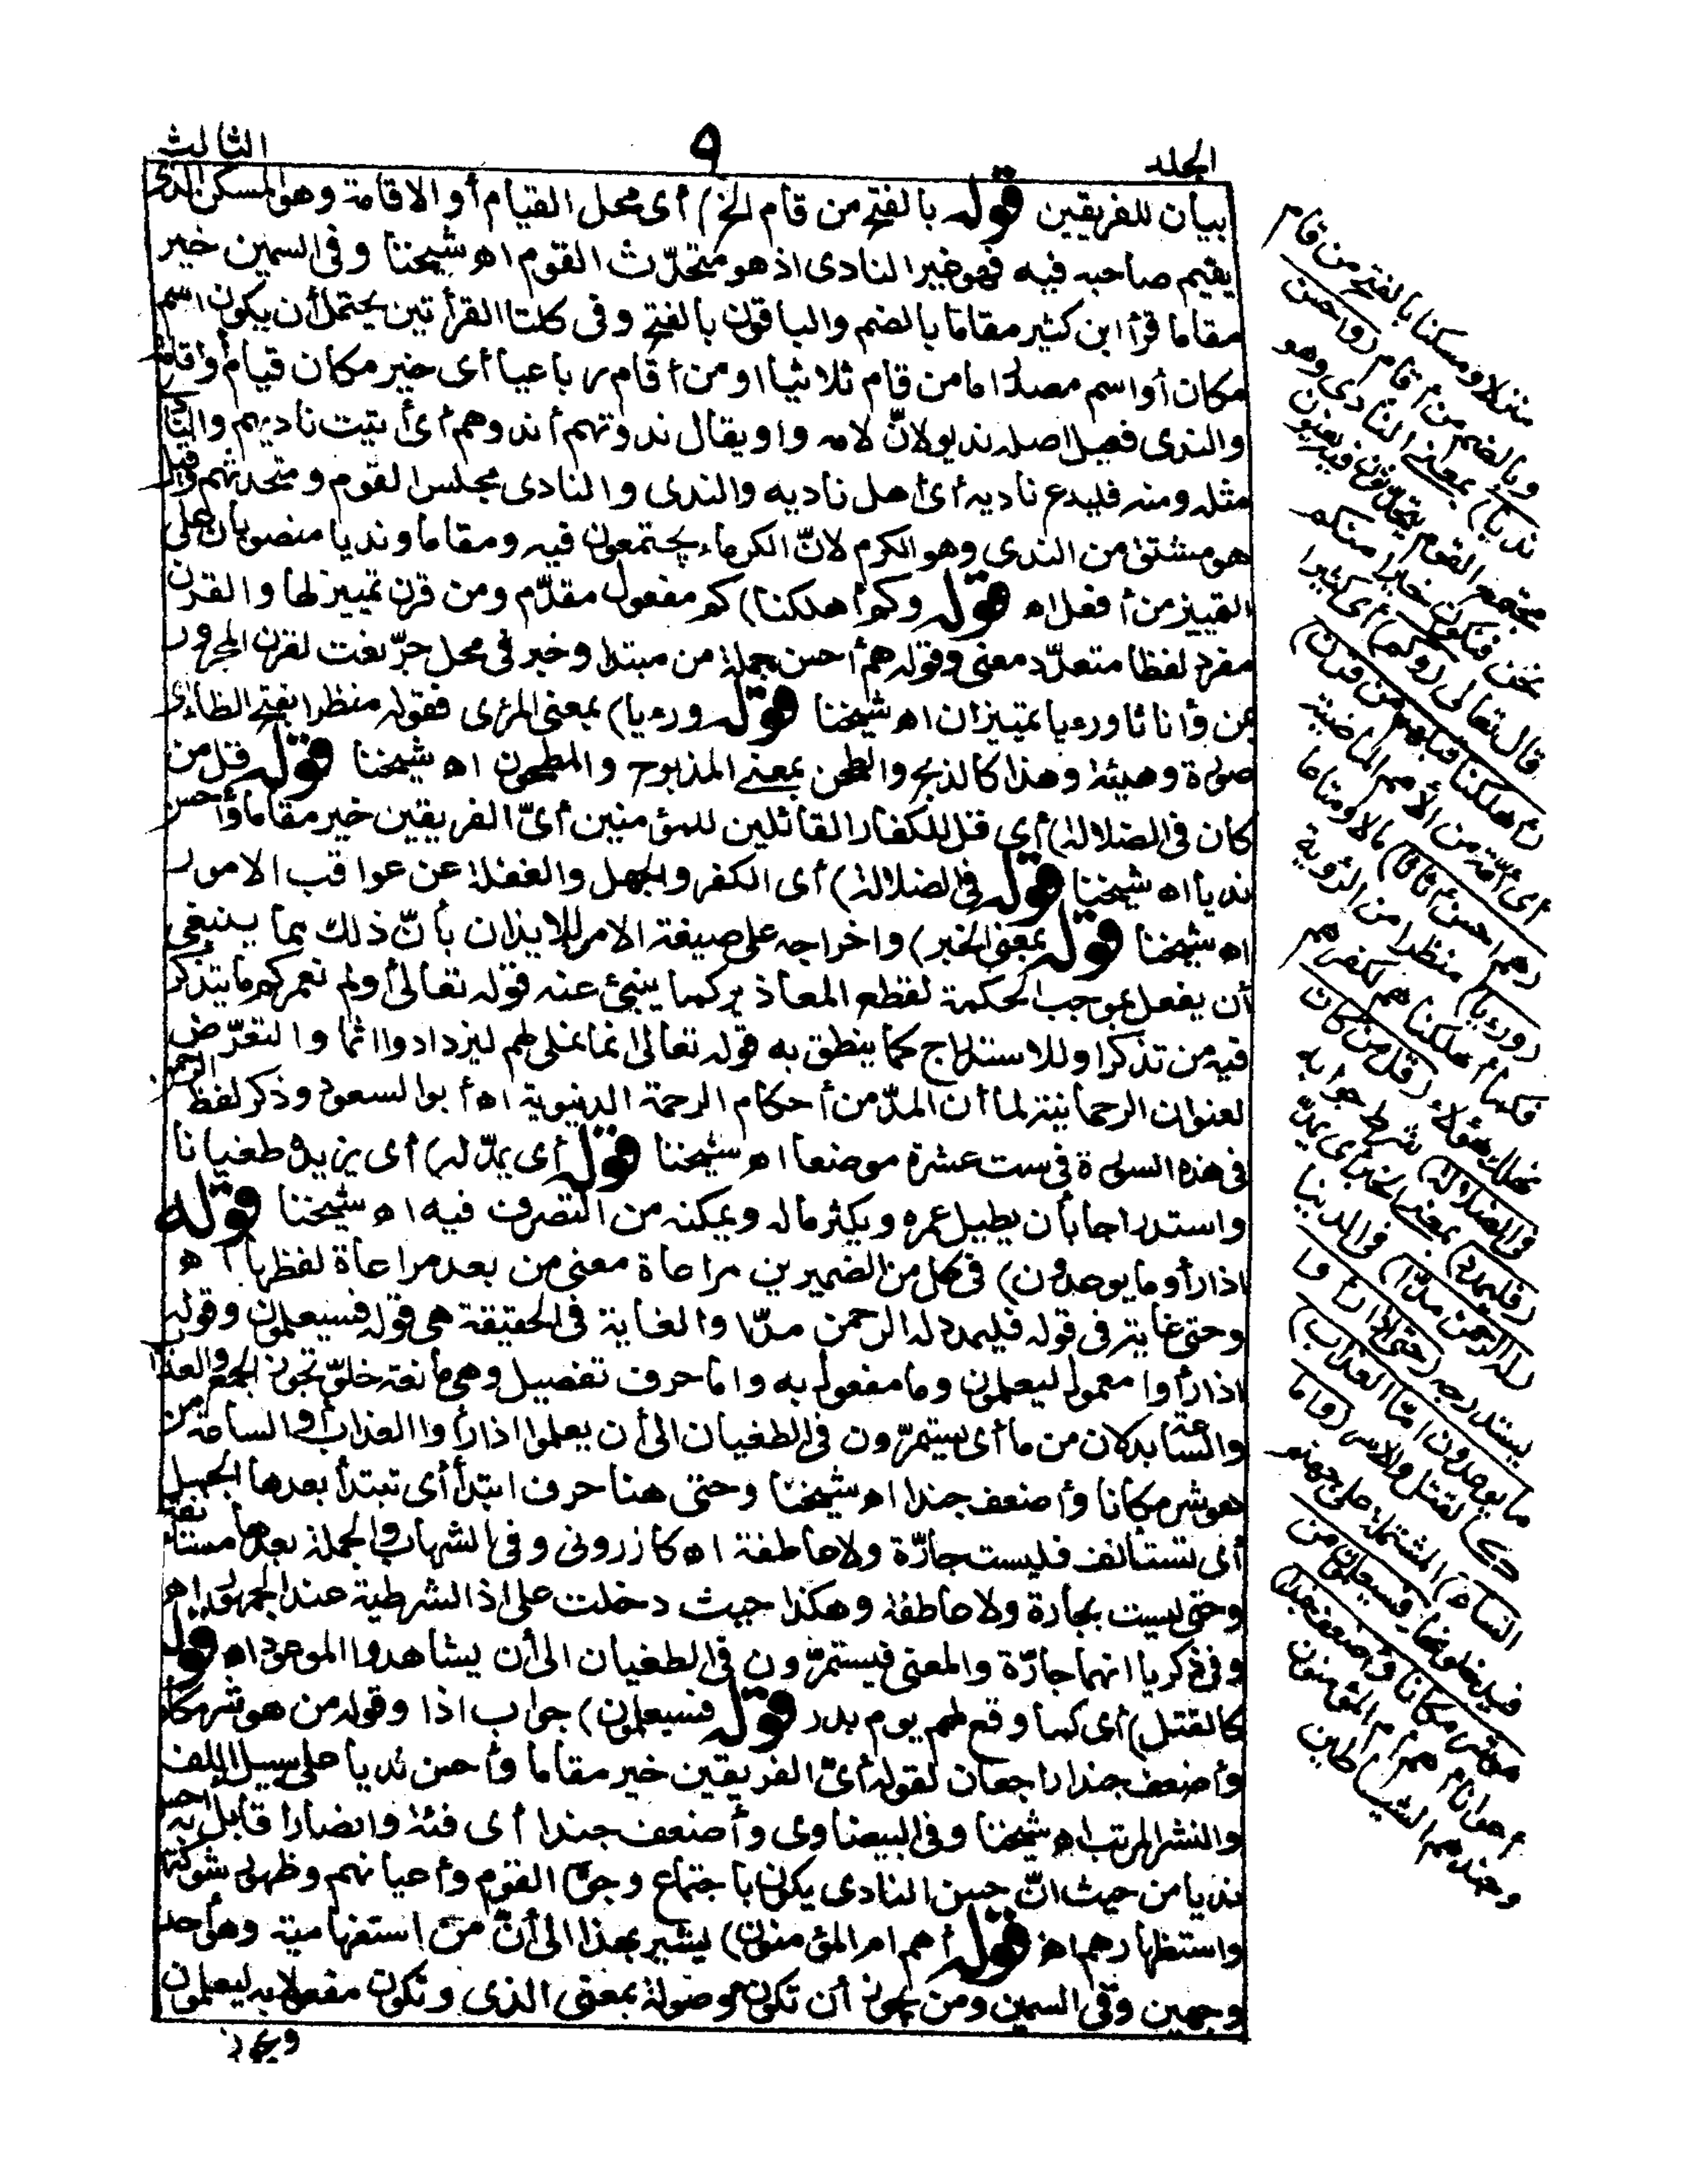 الجلد
٩
الثالث
بيان للفريقين قوله بالفتح من قام الخ) أى محل القيام أو الاقامة وهو المسكن الذى
يقيم صاحبه فيه فهو غير النادى اذ هو متحدّث القوم اه شيخنا وفى السمين خير
مقاما قرأ ابن كثير مقاما بالضم والباقون بالفتح وفى كلتا القرأتين يحتمل أن يكون اسم
مكان أو اسم مصدر اما من قام ثلاثيا او من أقام رباعيا أى خير مكان قيام أو اقامة
والندى فعيل اصله نديو لانّ لامه واو يقال ندوتهم أندوهم أى أتيت ناديهم والنادى
مثله ومنه فليدع ناديه أى أهل ناديه والندى والنادى مجلس القوم ومتحدثهم وقيل
هو مشتق من الندى وهو الكرم لانّ الكرماء يجتمعون فيه ومقاما ونديا منصوبان على
التمييز من أفعل اه قوله وكم أهلكنا) كم مفعول مقدّم ومن قرن تمييز لها والقرن
مفرد لفظا متعدّد معنى وقوله هم أحسن جملة من مبتدا وخبر فى محل جرّ نعت لقرن المجرور
بمن وأثاثا ورءيا تمييزان اه شيخنا قوله ورءيا) بمعنى المرئى فقوله منظرا بفتح الظاء أى
صورة وهيئة وهذا كالذبح والطحن بمعنى المذبوح والمطحون اه شيخنا قوله قل من
كان فى الضلالة) أى قل للكفار القائلين للمؤمنين أىّ الفريقين خير مقاما وأحسن
نديا اه شيخنا قوله فى الضلالة) أى الكفر والجهل والغفلة عن عواقب الامور
اه شيخنا قوله بمعنى الخبر) واخراجه على صيغة الامر للايذان بأنّ ذلك مما ينبغى
أن يفعل بموجب الحكمة لقطع المعاذير كما ينبئ عنه قوله تعالى أولم نعمركم ما يتذكر
فيه من تذكر او للاستدراج كما ينطق به قوله تعالى انما نملى لهم ليزدادوا اثما والتعرّض
لعنوان الرحمانية لما أن المدّ من أحكام الرحمة الدنيوية اه أبو السعود وذكر لفظ الرحمن
فى هذه السورة فى ست عشرة موضعا اه شيخنا قوله أى يمدّ له) أى يزيده طغيانا
واستدراجا بأن يطيل عمره ويكثر ماله ويمكنه من التصرف فيه اه شيخنا قوله
اذا رأوا ما يوعدون) فى كل من الضميرين مراعاة معنى من بعد مراعاة لفظها اه
وحتى غاية فى قوله فليمدد له الرحمن مدّا والغاية فى الحقيقة هى قوله فسيعلمون وقوله
اذا رأوا معمول ليعلمون وما مفعول به واما حرف تفصيل وهى مانعة خلوّ تجوز الجمع والعذاب
والساعة بدلان من ما أى يستمرّون فى الطغيان الى أن يعلموا اذا رأوا العذاب أو الساعة من
هو شر مكانا وأضعف جندا اه شيخنا وحتى هنا حرف ابتدأ أى تبتدأ بعدها الجمل
أى تستأنف فليست جارّة ولا عاطفة اه كازرونى وفى الشهاب والجملة بعدها مستأنفة
وحتى ليست بجارة ولا عاطفة وهكذا حيث دخلت على اذا الشرطية عند الجمهور اه
وفى ذكريا انهما جارّة والمعنى فيستمرّون فى الطغيان الى أن يشاهدوا الموعود اه قوله
كالقتل) أى كما وقع لهم يوم بدر قوله فسيعلمون) جواب اذا وقوله من هو شر مكانا
وأضعف جندا راجعان لقوله أىّ الفريقين خير مقاما وأحسن نديا على سبيل اللف
والنشر المرتب اه شيخنا وفى البيضاوى وأضعف جندا أى فئة وانصارا قابل به أحسن
نديا من حيث انّ حسن النادى يكون باجتماع وجوه القوم وأعيانهم وظهور شوكتهم
واستظهارهم اه قوله أهم ام المؤمنون) يشير بهذا الى أنّ من استفهامية وهو أحد
وجهين وفى السمين ومن يجوز أن تكون موصولة بمعنى الذى وتكون مفعولا به ليعلمون
ويجوز
منزلا ومسكنا بالفتح من قام
وبالضم من أقام (وأحسن
نديا) بمعنى النادى وهو
مجتمع القوم يتحدّثون فيه يعنون
نحن فنكون خيرا منكم
قال تعالى (وكم) أى كثيرا
(أهلكنا قبلهم من قرن)
أى أمّة من الأمم الماضية
(هم أحسن أثاثا) مالا ومتاعا
(ورءيا) منظرا من الرؤية
فكما أهلكناهم لكفرهم
نهلك هؤلاء (قل من كان
فى الضلالة) شرط جوابه
(فليمدد) بمعنى الخبر أى يمدّ
(له الرحمن مدّا) فى الدنيا
يستدرجه (حتى اذا رأوا
ما يوعدون امّا العذاب)
كالقتل والاسر (واما
الساعة) المشتملة على جهنم
فيدخلونها (فسيعلمون من
هو شر مكانا وأضعف جندا)
أهم أم المؤمنون
وجندهم الشياطين